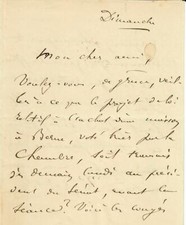 Dimanche
Mon cher ami,
Voulez-vous, de grâce, veil-
ler à ce que le projet de loi
relatif à l'achat d'un
à Berne, voté hier par la
Chambre, soit transmis
dès demain lundi au prési-
dent du Sénat, avant la
séance? Voici les congés